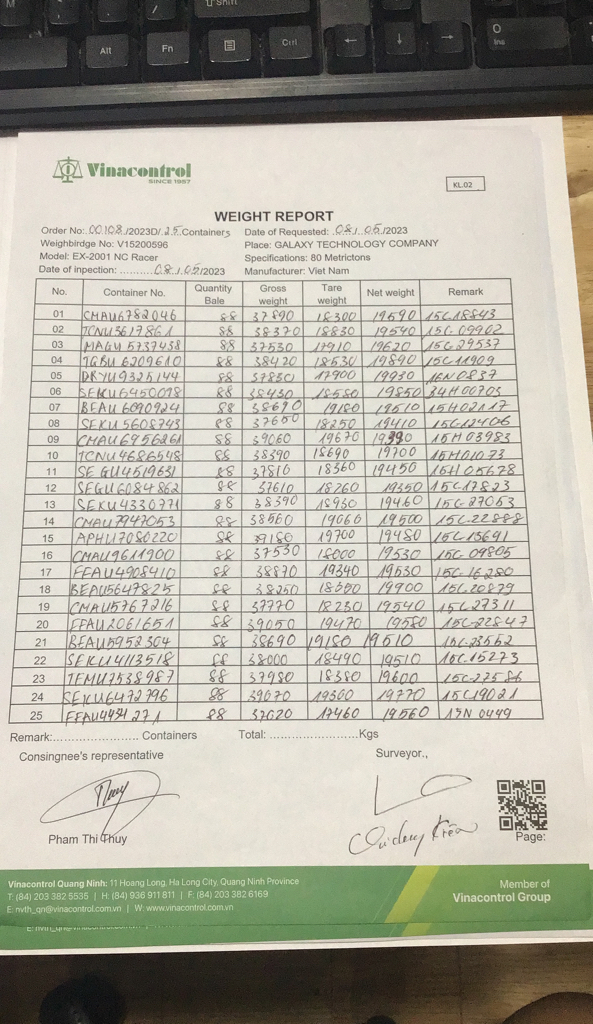 Alt
Fn
Ctrl
Shift
Ins
Vinacontrol
SINCE 1957
KL.02
WEIGHT REPORT
Order No: 00108/2023D/.25.Containers Date of Requested: .08./..05/2023
Weighbirdge No: V15200596 Place: GALAXY TECHNOLOGY COMPANY
Model: EX-2001 NC Racer Specifications: 80 Metrictons
Date of inpection: ..........08./.05/2023 Manufacturer: Viet Nam
No. Container No. Quantity Bale Gross weight Tare weight Net weight Remark
01 CMAU6782046 88 37890 18300 19590 15C18843
02 TCNU3617861 88 38370 18830 19540 15C-09902
03 MAGU 5737438 88 37530 17910 19620 15C-29537
04 TGBU 6209610 88 38420 18530 19890 15C11909
05 DRYU9325144 88 37830 17900 19930 16N0837
06 SEKU6450098 88 38430 18580 19850 34H00703
07 BEAU 6090924 88 38690 19180 19510 15H02117
08 SEKU 5608743 88 37650 18250 19410 15C12406
09 CMAU6956261 88 39060 19670 19390 15H03983
10 TCNU4686548 88 38390 18690 19700 15H01073
11 SEGU4519631 88 37810 18360 19450 16H05678
12 SEGU6084862 88 37610 18260 19350 15C17823
13 SEKU4330771 88 38390 18930 19460 15C-27053
14 CMAU7947053 88 38560 19060 19500 15C-22888
15 APHU7080220 88 39180 19700 19480 15C13691
16 CMAU9611900 88 37530 18000 19530 15C-09805
17 FFAU4908410 88 38870 19340 19530 15C-16280
18 BEAU5647825 88 38250 18350 19900 15C20879
19 CMAU5767216 88 37770 18230 19540 15C27311
20 FFAU2061651 88 39050 19470 19580 15C-22847
21 BEAU5952304 88 38690 19180 19510 15C-23552
22 SEKU4113518 88 38000 18490 19510 15C15273
23 TEMU7538987 88 37980 18380 19600 15C-27586
24 SEKU6472796 88 39070 19300 19770 15C19021
25 FFAU4494271 88 37020 17460 19560 15N 0449
Remark:....................... Containers Total: .......................Kgs
Consingnee's representative Surveyor.,
Thuy
Pham Thi Thuy
Page:
Vinacontrol Quang Ninh: 11 Hoang Long, Ha Long City, Quang Ninh Province
T: (84) 203 382 5535 | H: (84) 936 911 811 | F: (84) 203 382 6169
E: nvth_qn@vinacontrol.com.vn | W: www.vinacontrol.com.vn
Member of
Vinacontrol Group